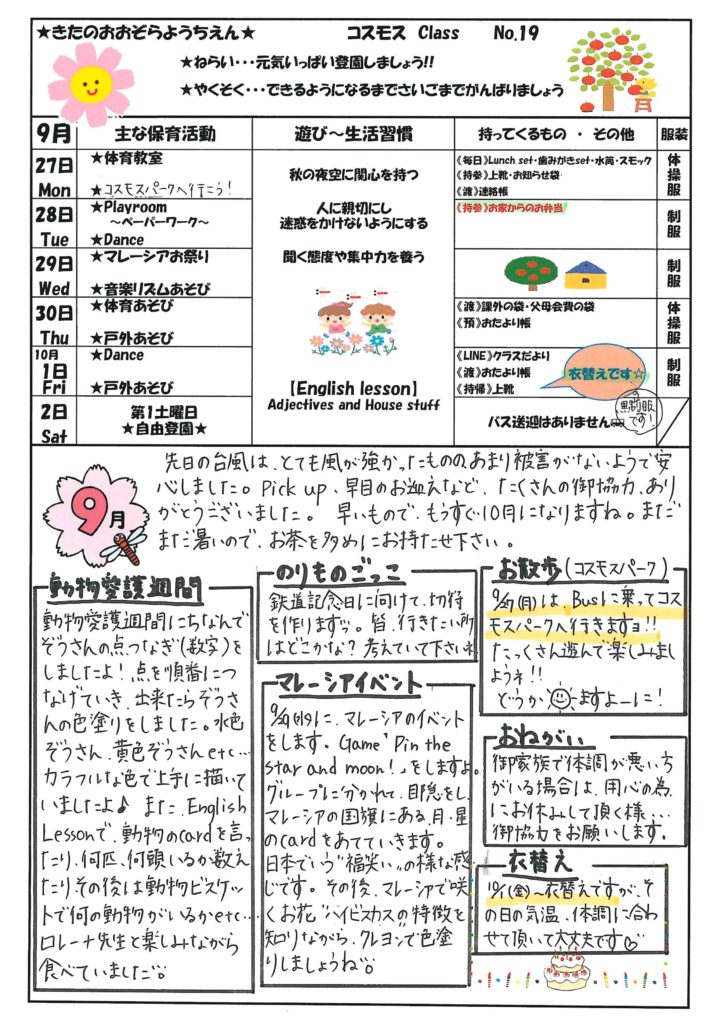 ★きたのおおぞらようちえん★ コスモス Class No.19
★ねらい・・・元気いっぱい登園しましょう!!
★やくそく・・・できるようになるまでさいごまでがんばりましょう
9月 主な保育活動 遊び～生活習慣 持ってくるもの ・ その他 服装
27日 Mon
★体育教室
★コスモスパークへ行こう!
《毎日》Lunch set・歯みがきset・水筒・スモック
《持参》上靴・お知らせ袋
《渡》連絡帳
体操服
28日 Tue
★Playroom
～ペーパーワーク～
★Dance
《持参》お家からのお弁当
制服
29日 Wed
★マレーシアお祭り
★音楽リズムあそび
制服
30日 Thu
★体育あそび
★戸外あそび
《渡》課外の袋・父母会費の袋
《預》おたより帳
体操服
10月
1日 Fri
★Dance
★戸外あそび
《LINE》クラスだより
《渡》おたより帳
《持帰》上靴
衣替えです☆
制服
2日 Sat
第1土曜日
★自由登園★
バス送迎はありません
黒制服
です!
秋の夜空に関心を持つ
人に親切にし
迷惑をかけないようにする
聞く態度や集中力を養う
【English lesson】
Adjectives and House stuff
9月
先日の台風は、とても風が強かったものの、あまり被害がないようで安
心しました。Pick up、早目のお迎えなど、たくさんの御協力、あり
がとうございました。 早いもので、もうすぐ10月になりますね。まだ
まだ暑いので、お茶を多めにお持たせ下さい。
動物愛護週間
動物愛護週間にちなんで
ぞうさんの点つなぎ(数字)を
しましたよ!点を順番につ
なげていき、出来たらぞうさ
んの色塗りをしました。水色
ぞうさん、黄色ぞうさんetc…
カラフルな色で上手に描いて
いましたよ♪ また、English
Lessonで、動物のcardを言っ
たり、何匹、何頭いるか数え
たりその後は動物ビスケッ
トで何の動物がいるかetc…
ロレーナ先生と楽しみながら
食べていました
のりものごっこ
鉄道記念日に向けて、切符
を作りますッ。皆、行きたい所
はどこかな?考えていて下さいネ
マレーシアイベント
9/29(水)に、マレーシアのイベント
をします。Game"Pin the
star and moon!"をしますよ。
グループに分かれて、目隠をし、
マレーシアの国旗にある、月・星
のcardをあてていきます。
日本でいう"福笑い"の様な感
じです。その後、マレーシアで咲
くお花"ハイビスカスの特徴を
知りながら、クレヨンで色塗
りしましょうね
お散歩(コスモスパーク)
9/27(月)は、Busに乗ってコス
モスパークへ行きますョ!!
たっくさん遊んで楽しみまし
ょうネ!!
どうか ますよーに!
おねがい
御家族で体調が悪い方
がいる場合は、用心の為
にお休みして頂く様…
御協力をお願いします。
衣替え
10/1(金)～衣替えですが、そ
の日の気温、体調に合わ
せて頂いて大丈夫です♡